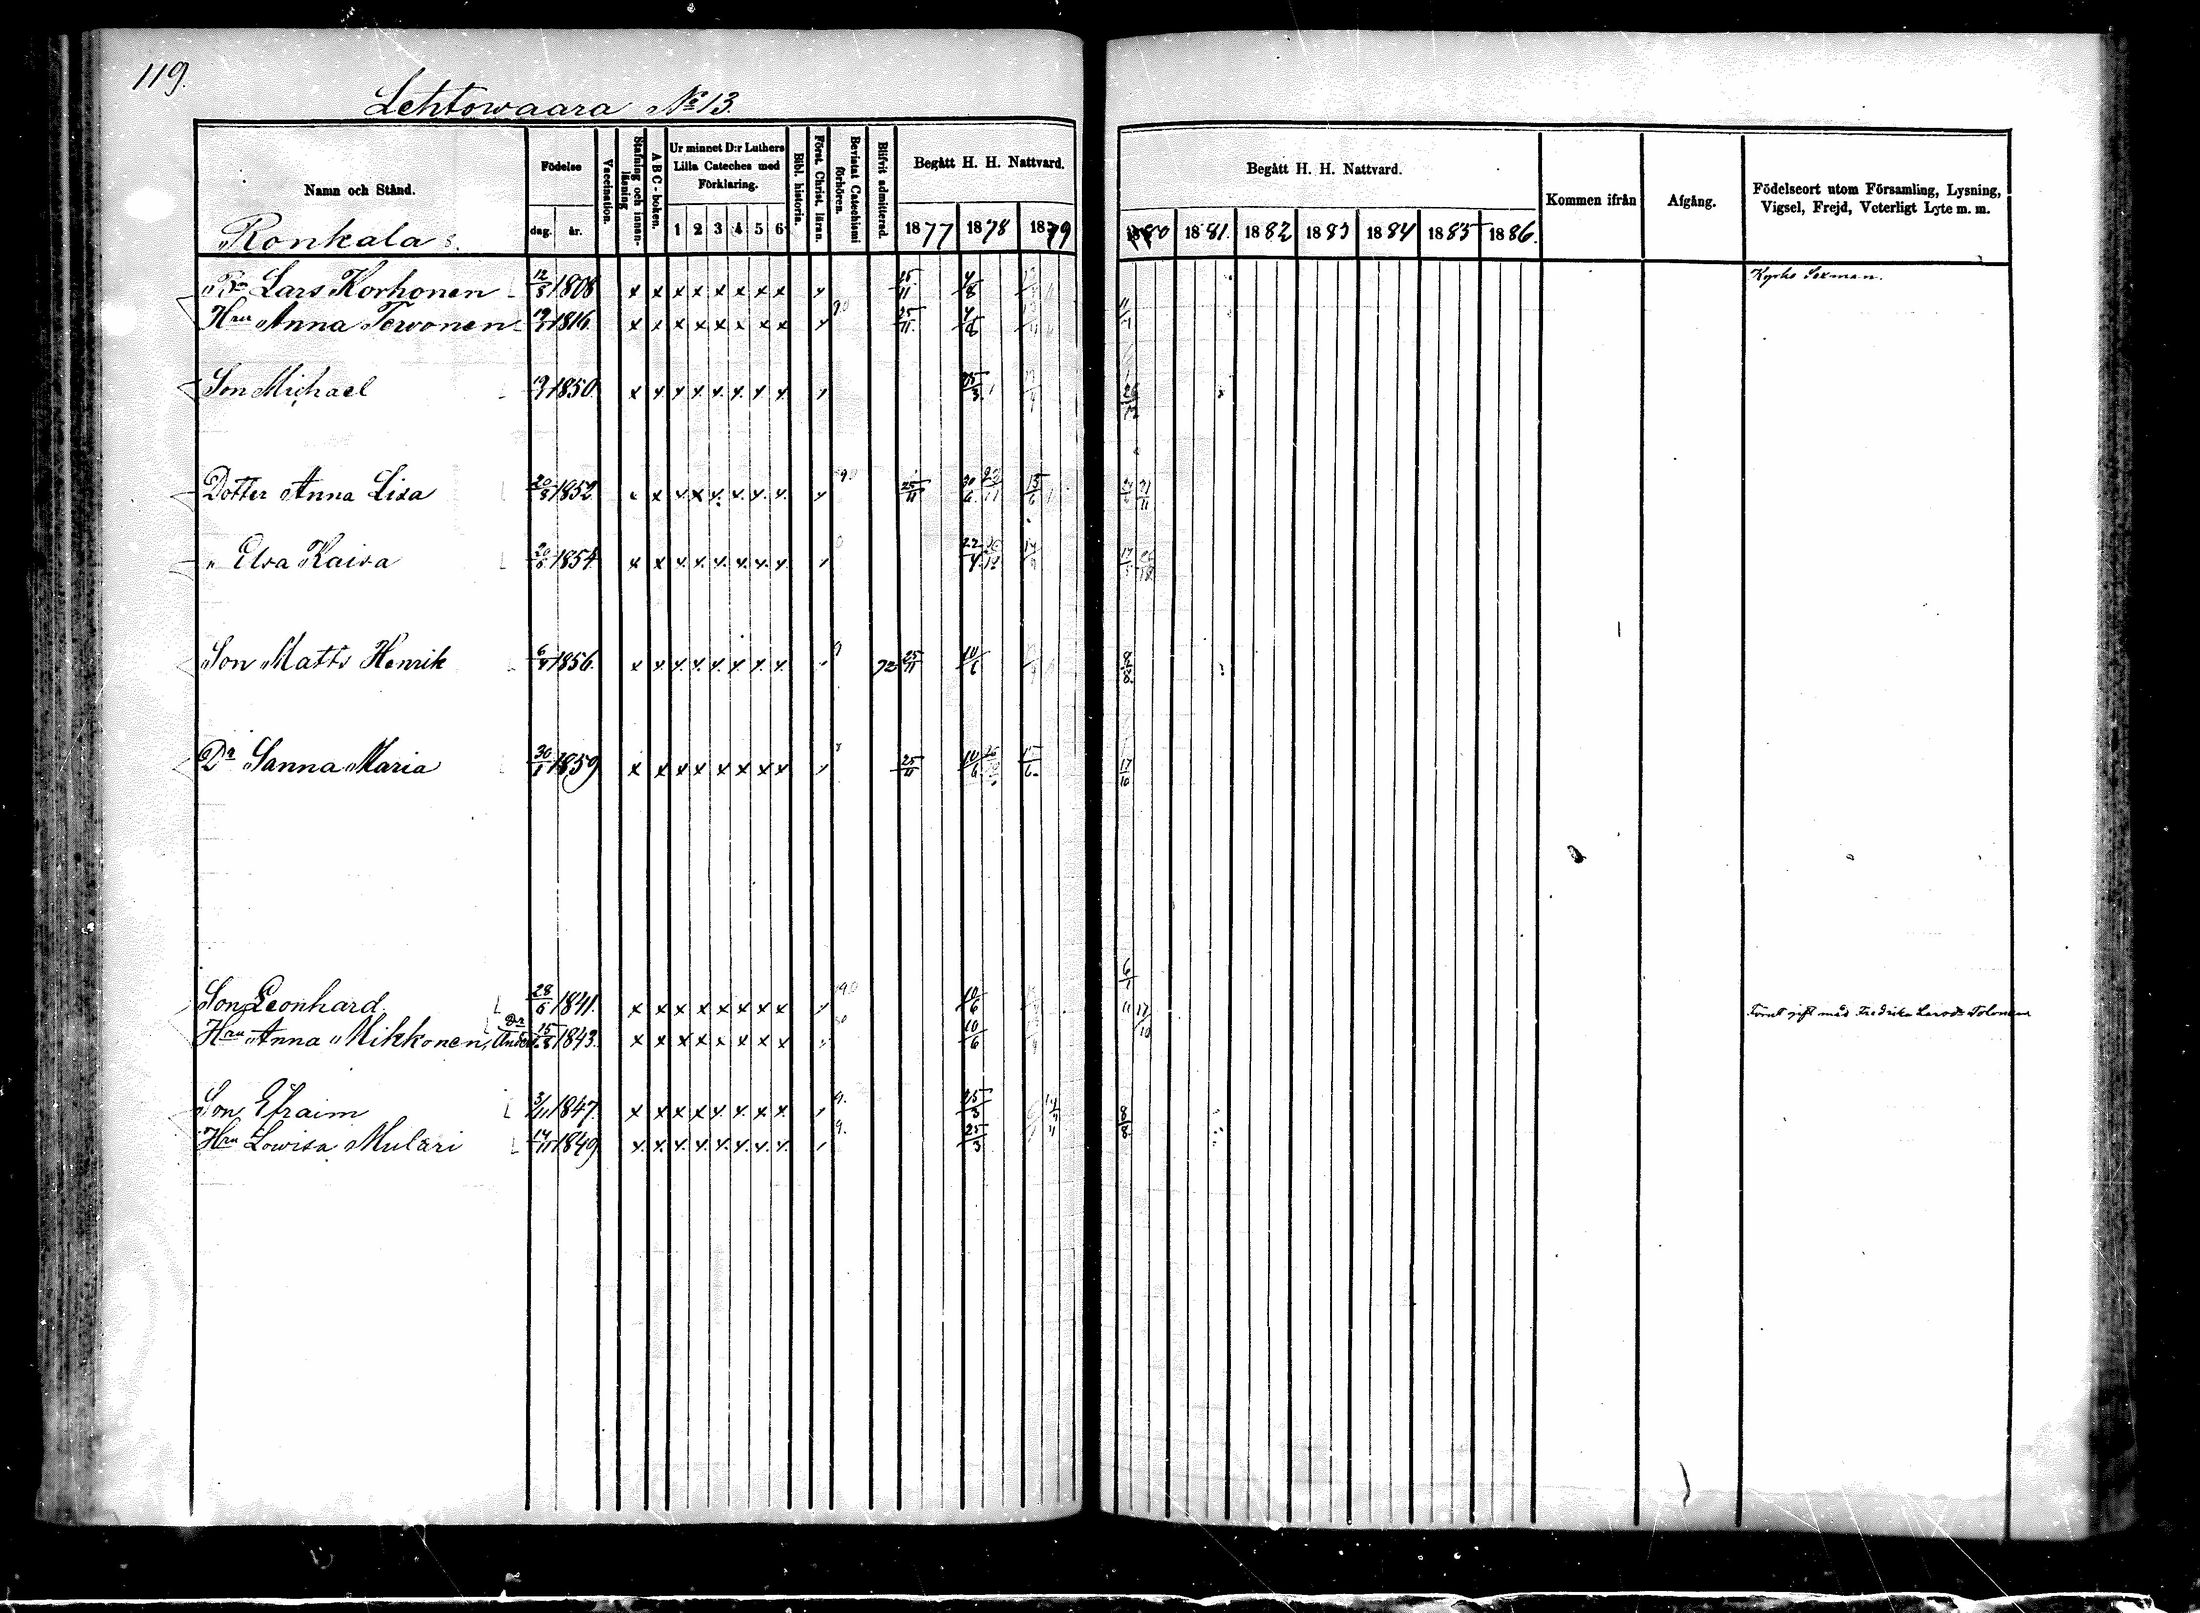 119.
Lehtowaara No 13.
Namn och Stånd.
Födelse
dag.
år.
Vaccination.
Stafning och innan-läsning
ABC-boken.
Ur minnet D:r Luthers Lilla Cateches med Förklaring.
1 2 3 4 5 6
Bibl. historia.
Först. Christ. läran.
Bevistat Catechismi förhören.
Blifvit admitterad.
Begått H. H. Nattvard.
1877 1878 1879
Begått H. H. Nattvard.
1880 1881. 1882 1883 1884 1885 1886.
Kommen ifrån
Afgång.
Födelseort utom Församling, Lysning, Vigsel, Frejd, Veterligt Lyte m. m.
Ronkala
Lars Korhonen 12/8 1808 x x x x x x x x 25/11 4/8 Kyrko Sexman.
Hru Anna Terwonen 1816. x x x x x x x x 25/11 4/8
Son Michael 1850. x x x x x x x x 25/3
Dotter Anna Lisa 1852 x x x x x x x 25/11 15/6
" Elsa Kaisa 1854 x x x x x x x x 22/4
Son Matts Henrik 1856. x x x x x x x x 72 25/11 10/6
Dr Sanna Maria 30/1 1859 x x x x x x x x 25/11 10/6 15/6 17/10
Son Leonhard 28/5 1841. x x x x x x x x 10/6 17/10 Förut gift med Fredrika Larsdr Tolonen
Hru Anna Mikkonen, Anders Dr 15/8 1843. x x x x x x x x 10/6
Son Efraim 3/11 1847. x x x x x x x x 25/3 8/8
Hru Lowisa Mulari 14/11 1849 x x x x x x x x 25/3